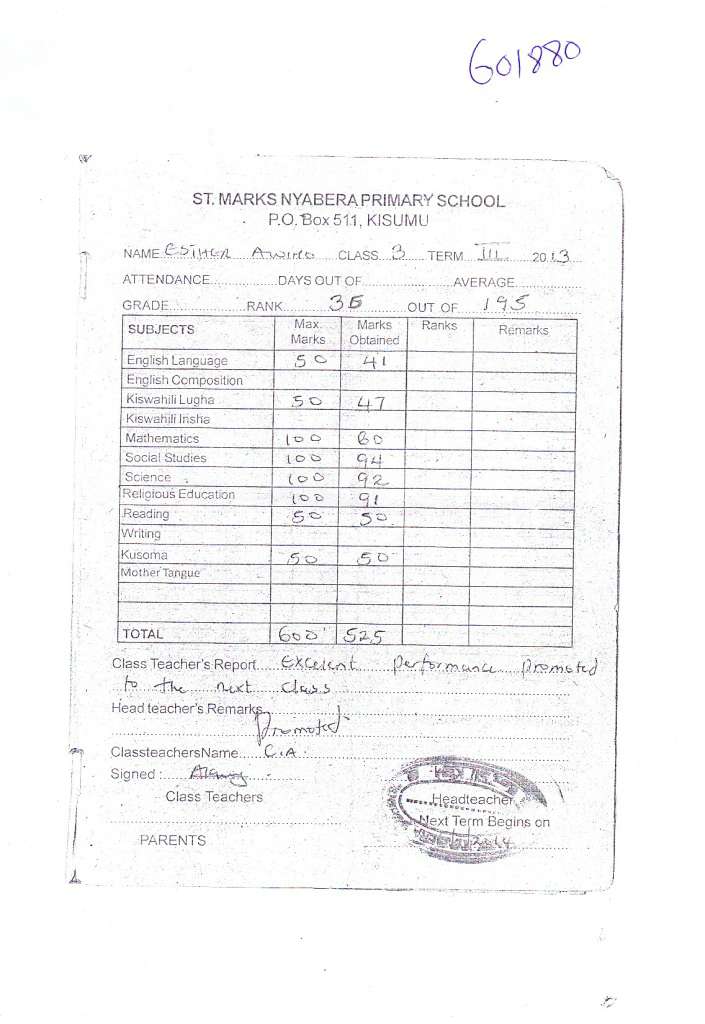 601880
ST. MARKS NYABERA PRIMARY SCHOOL
P.O. Box 511, KISUMU
NAME ESTHER CLASS 3 TERM III 2013
ATTENDANCE DAYS OUT OF AVERAGE
GRADE RANK 35 OUT OF 195
SUBJECTS Max. Marks Marks Obtained Ranks Remarks
English Language 50 41
English Composition
Kiswahili Lugha 50 47
Kiswahili Insha
Mathematics 100 60
Social Studies 100 94
Science 100 92
Religious Education 100 91
Reading 50 50
Writing
Kusoma 50 50
Mother Tangue
TOTAL 600 525
Class Teacher's Report Excelent performance promoted
to the next class
Head teacher's Remarks
Promoted
ClassteachersName C.A.
Signed :
Class Teachers
Headteacher
Next Term Begins on
PARENTS